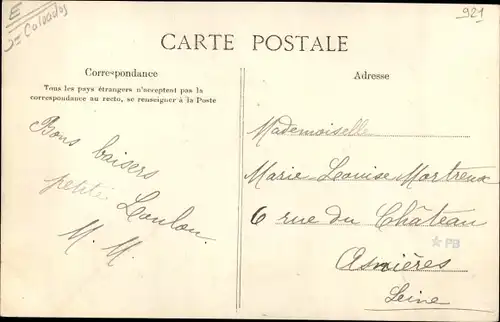 E
Calvados
921
CARTE POSTALE
Correspondance
Tous les pays étrangers n'acceptent pas la
correspondance au recto, se renseigner à la Poste
Bons baisers
petite Loulou.
M. M.
Adresse
Mademoiselle
Marie Louise Mortreux
6 rue du Château
Asnières
Seine
PB